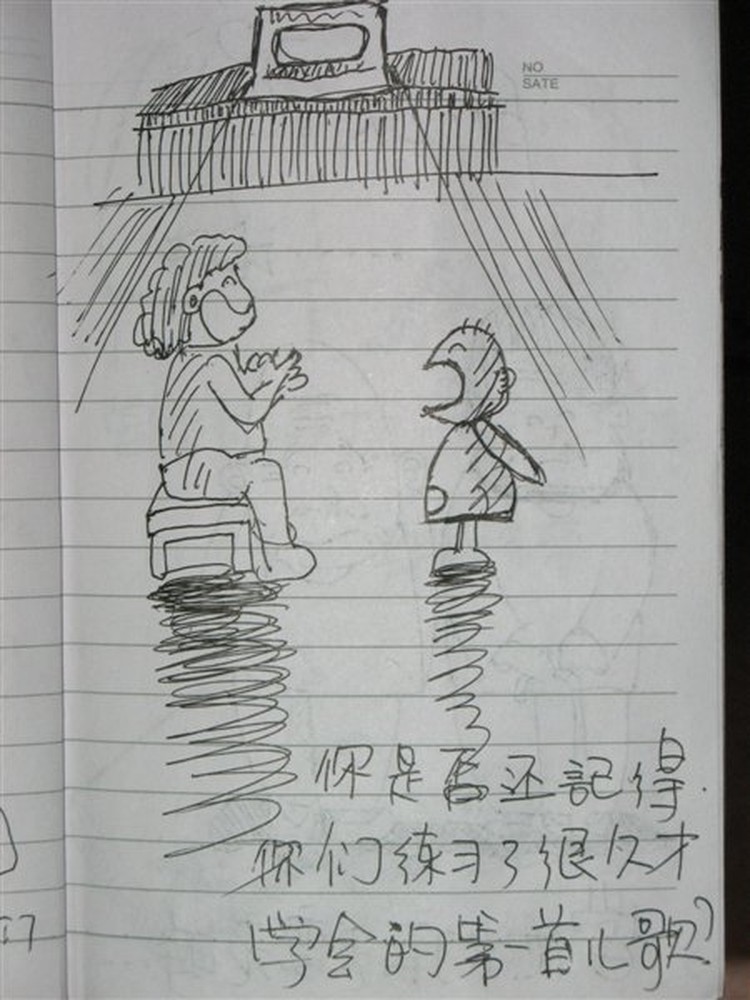 NO
SATE
你是否还記得.
你们练习了很久才
学会的第一首儿歌?